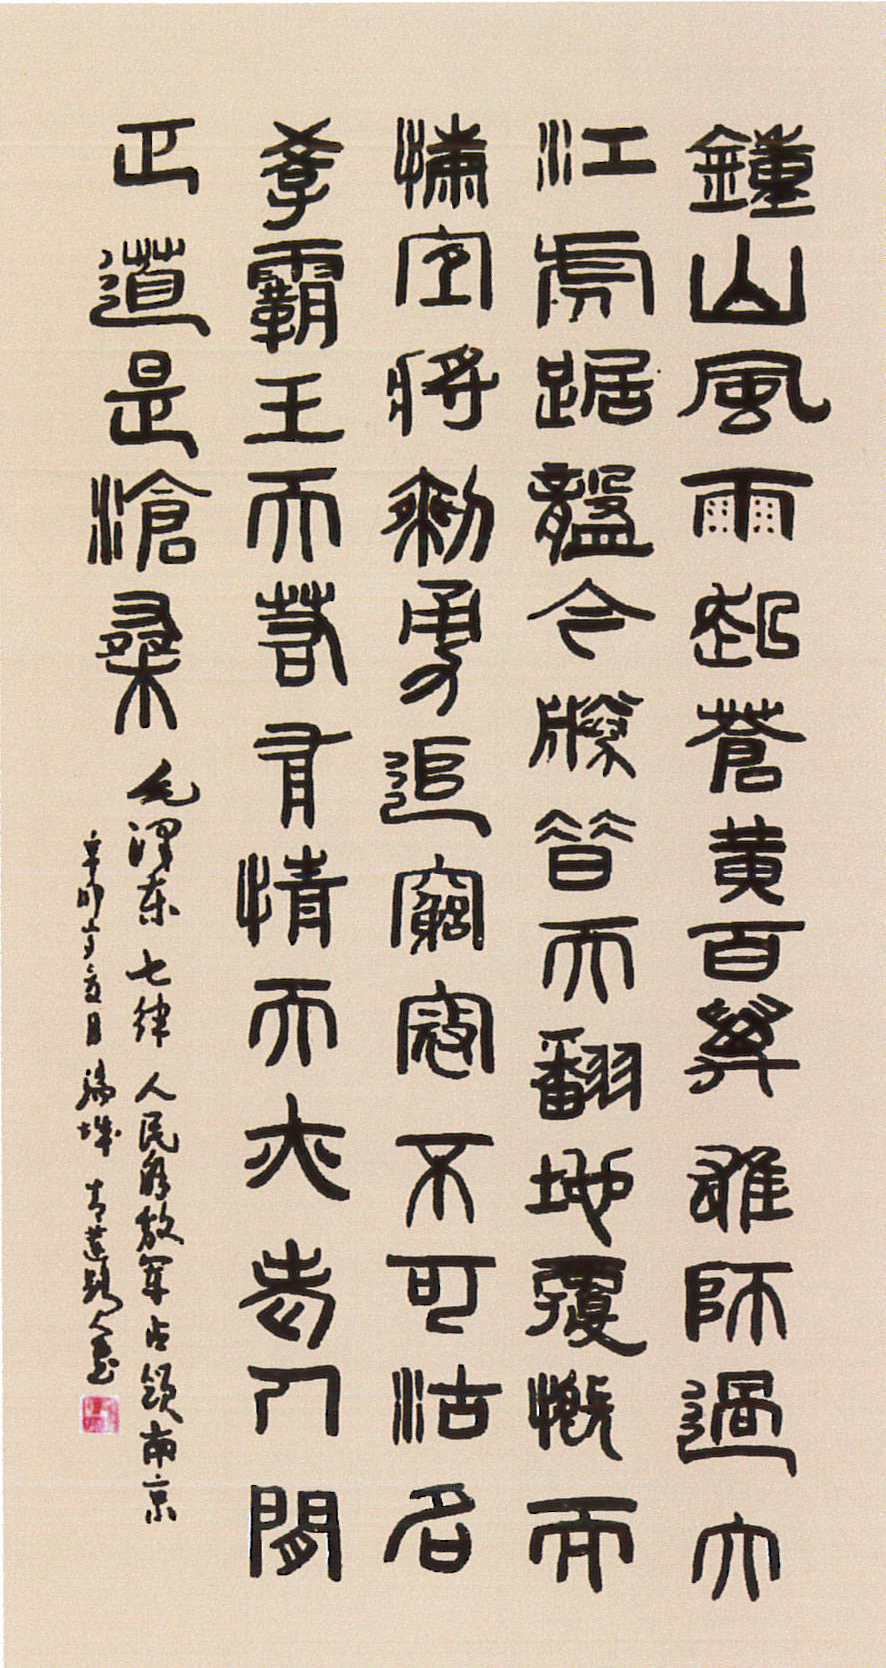 鍾山風雨起蒼黃百萬雄師過大
江虎踞龍盤今勝昔天翻地覆慨而
慷宜將剩勇追窮寇不可沽名
學霸王天若有情天亦老人間
正道是滄桑
毛泽东七律人民解放军占领南京
辛卯年夏月